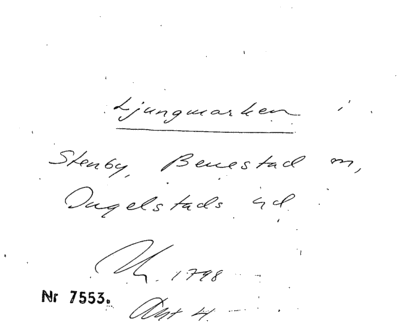 Ljungmarken i
Stenby, Benestad sn,
Ingelstads hd
1798
Nr 7553.
Akt 4.